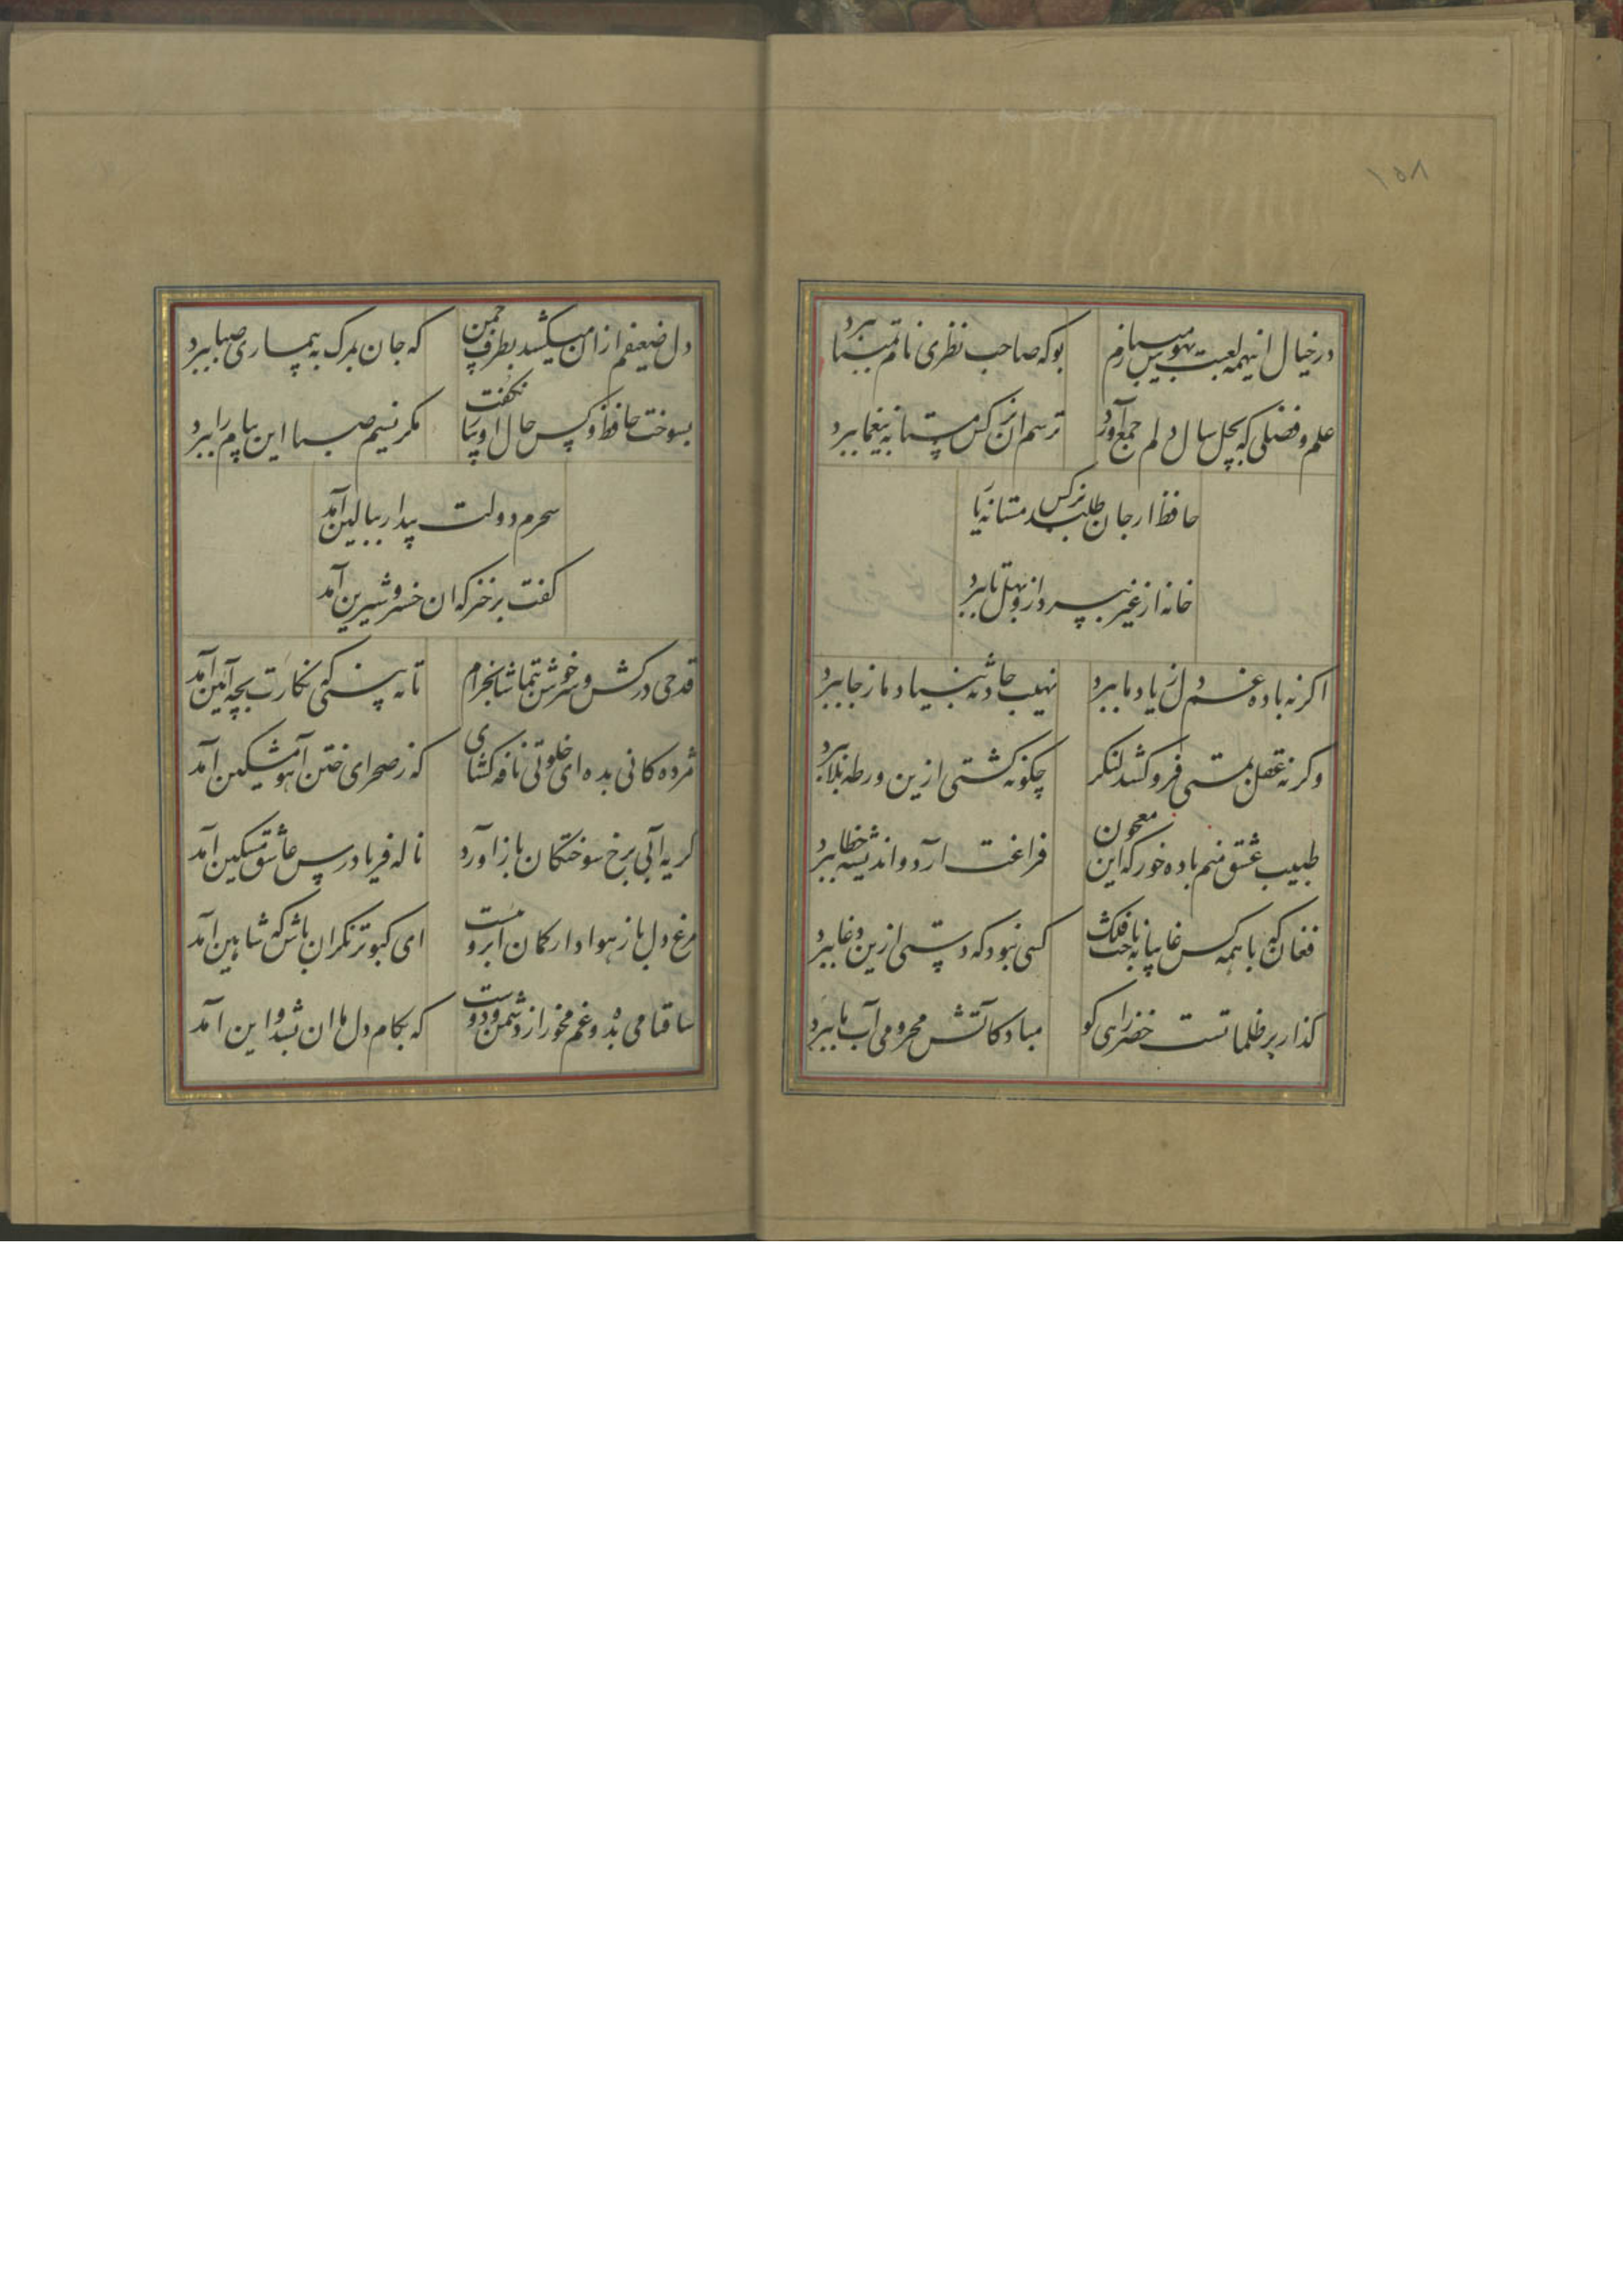 ۱۵۸
در خیال اینهمه لعبت بهوس میبازم بوکه صاحب نظری نام تمنا ببرد
علم و فضلی که بچل سال دلم جمع آورد ترسم ان نرکس مستانه بیغما ببرد
حافظ ار جان طلبد نرکس مستانه یا
خانه از غیر بپرداز و بهل تا ببرد
اکر نه باده غم دل ز یاد ما ببرد نهیب حادثه بنیاد ما ز جا ببرد
وکر نه عقل بمستی فرو کشد لنکر چکونه کشتی ازین ورطه بلا ببرد
طبیب عشق منم باده خور که این معجون فراغت آرد و اندیشه خطا ببرد
فغان که با همه کس غایبانه باخت فلک کسی نبود که دستی ازین دغا ببرد
کذار بر ظلماتست خضر راهی کو مباد کاتش محرومی آب ما ببرد
دل ضعیفم از ان میکشد بطرف چمن که جان ز مرک به بیماری صبا ببرد
بسوخت حافظ و کس حال او بیار نکفت مکر نسیم صبا این پیام را ببرد
سحرم دولت بیدار ببالین آمد
کفت برخیز که ان خسرو شیرین آمد
قدحی درکش و سرخوش بتماشا بخرام تا به بینی که نکارت بچه آیین آمد
مژده کانی بده ای خلوتی نافه کشای که ز صحرای ختن آهو مشکین آمد
کریه آبی برخ سوختکان باز آورد ناله فریاد رس عاشق مسکین آمد
مرغ دل باز هوادار کمان ابروست ای کبوتر نکران باش که شاهین آمد
ساقیا می بده و غم مخور از دشمن و دوست که بکام دل ما ان بشد و این آمد